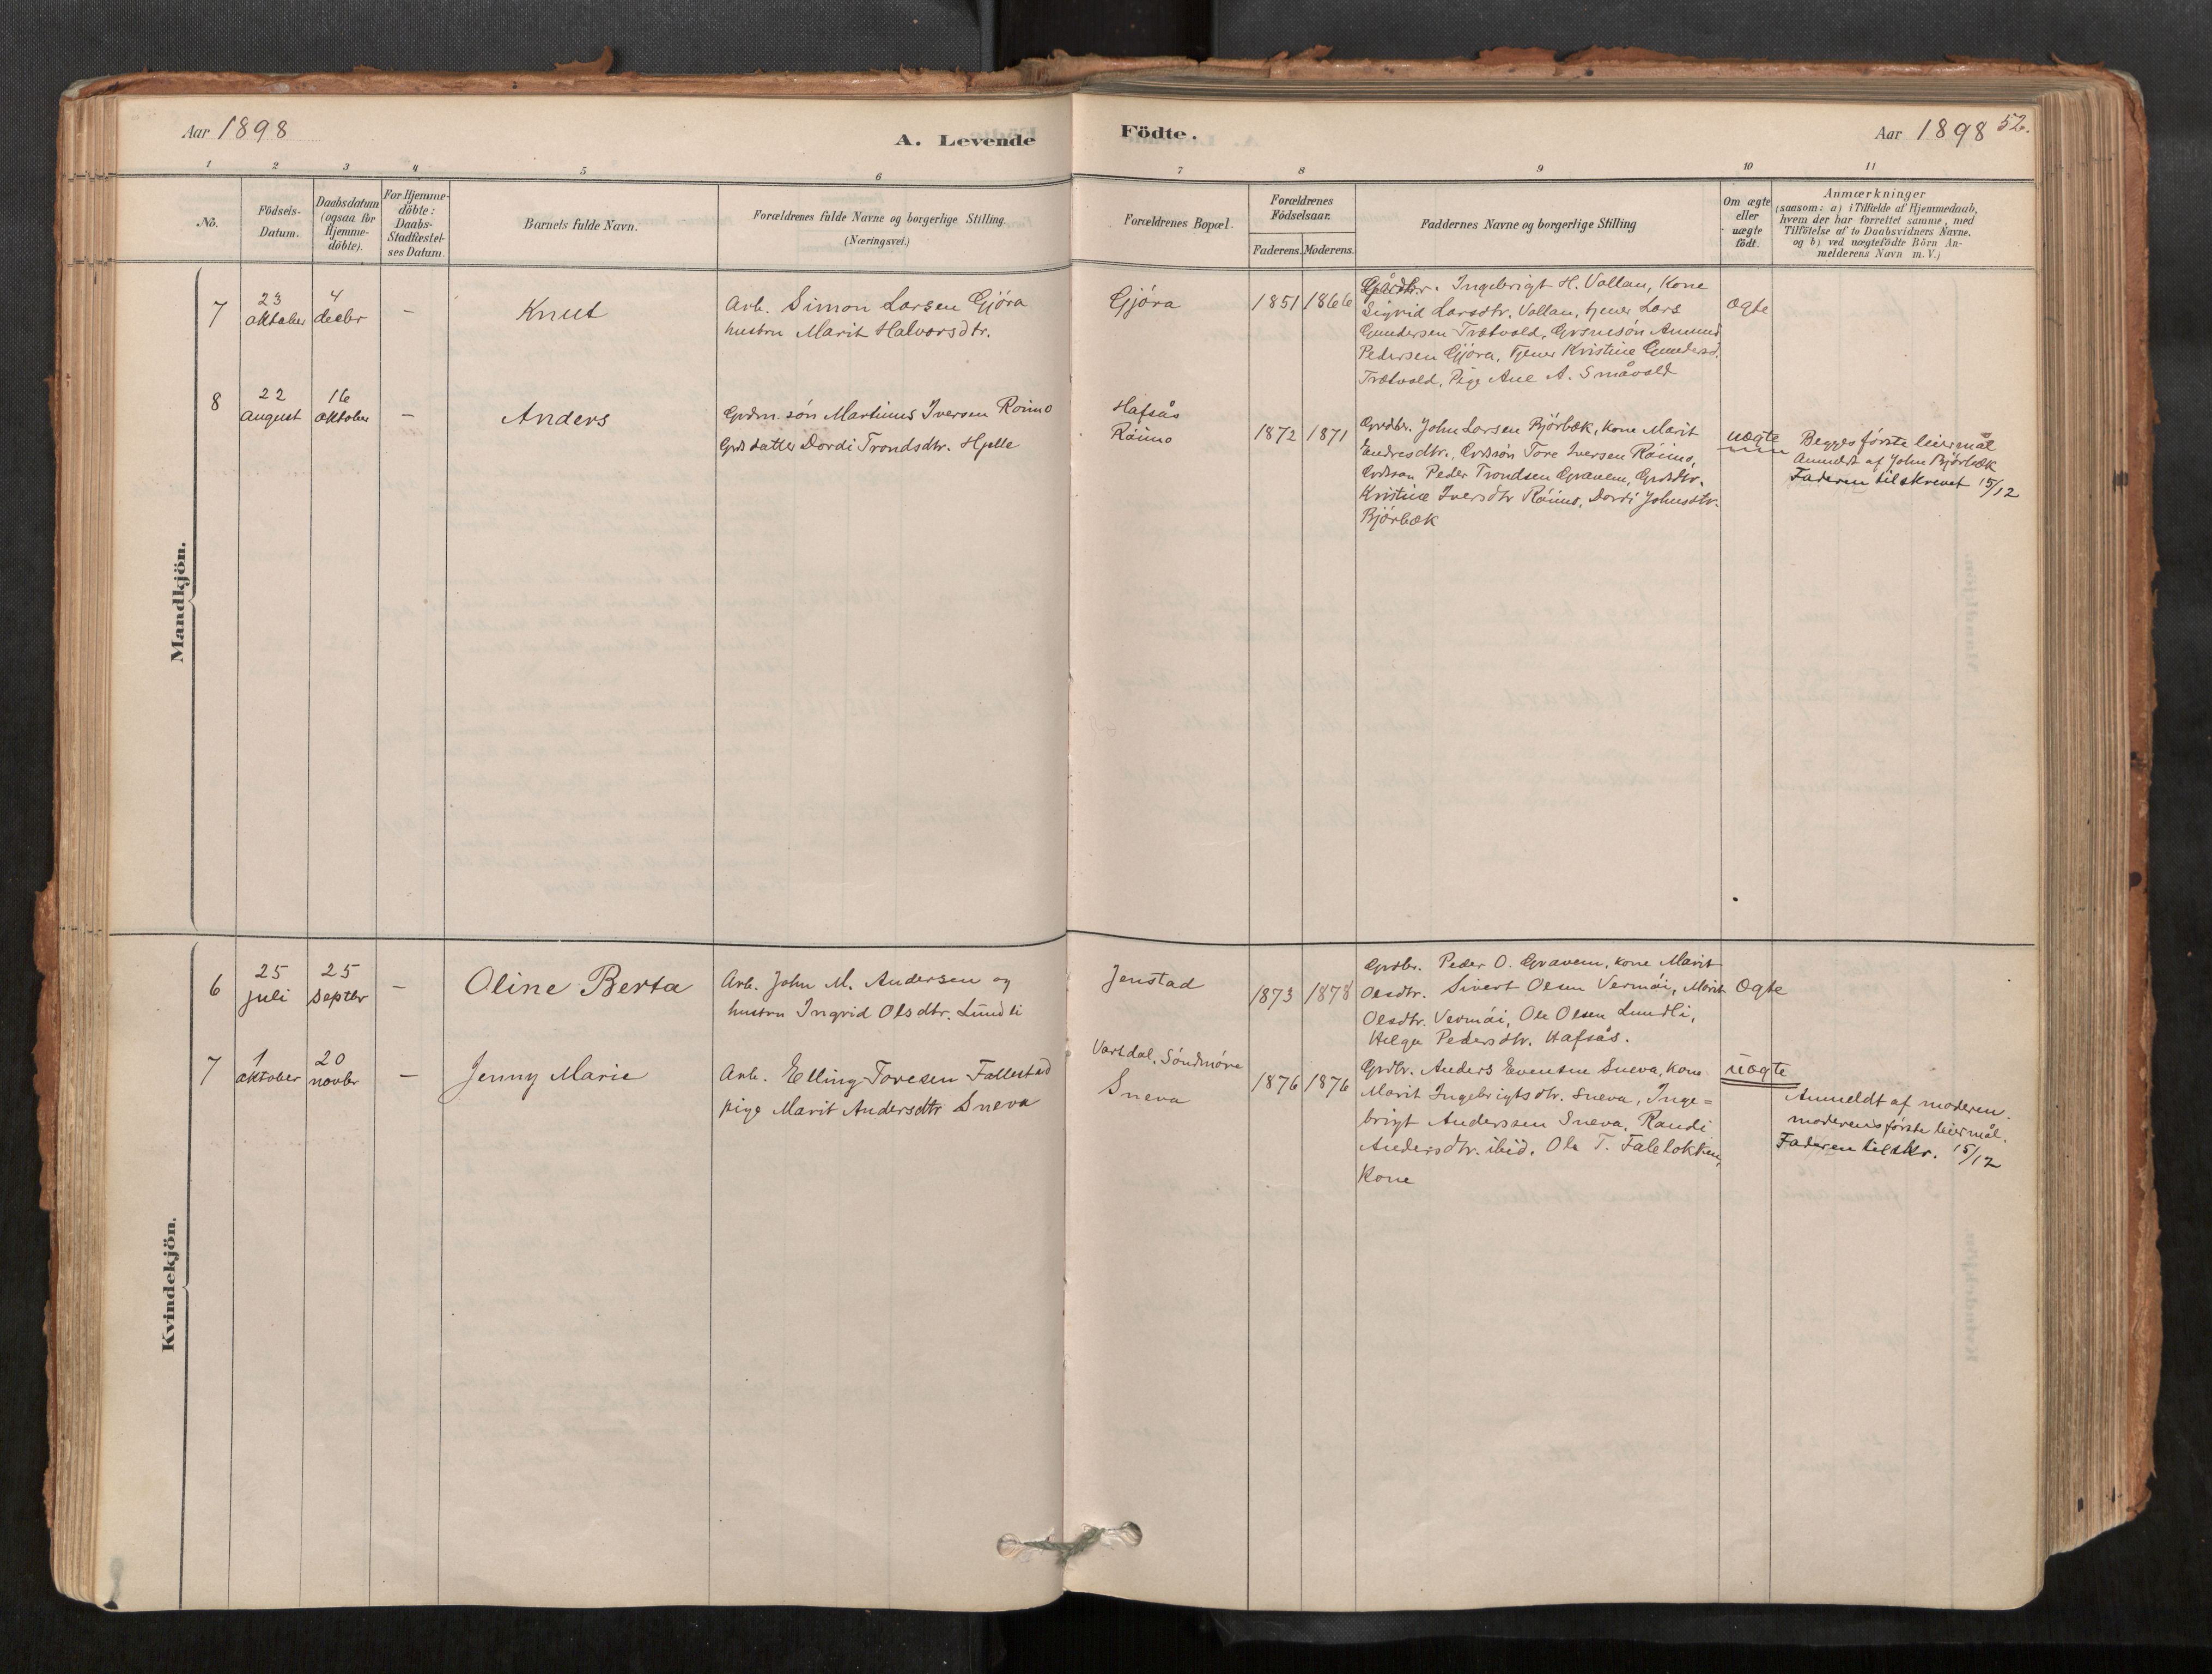 Aar 1898
A. Levende
Födte.
Aar 1898
52.
1 2 3 4 5 6 7 8 9 10 11
No.
Födsels-
Datum.
Daabsdatum
(ogsaa for
Hjemme-
döbte).
For Hjemme-
döbte:
Daabs-
Stadfæstel-
ses Datum.
Barnets fulde Navn.
Forældrenes fulde Navne og borgerlige Stilling.
(Næringsvei.)
Forældrenes Bopæl.
Forældrenes
Födselsaar.
Faderens. Moderens.
Faddernes Navne og borgerlige Stilling
Om ægte
eller
uægte
födt.
Anmærkninger
(saasom: a) i Tilfælde af Hjemmedaab,
hvem der har forrettet samme, med
Tilföielse af to Daabsvidners Navne,
og b) ved uægtefödte Börn An-
melderens Navn m. V.)
Mandkjön.
7
23
oktober
4
decbr
–
Knut
Arb. Simon Larsen Gjöra
hustru Marit Halvorsdtr.
Gjöra
1851 1866
Gårdbr. Ingebrigt H. Vollan, Kone
Sigrid Larsdtr. Vollan, tjener Lars
Gundersen Trætvold, Amund
Pedersen Gjöra, Tjener Kristine Gundersd.
Trætvold, Pige Ane A. Småvold
ægte
8
22
august
16
oktober
–
Anders
Grdm. sön Martinus Iversen Röimo
Grds datter Dordi Trondsdtr. Hjelle
Hafsås
Röimo
1872 1871
Grdbr. John Larsen Björbæk, Kone Marit
Endresdtr., Grdsön Tore Iversen Röimo,
Peder Trondsen Gravem, Grdsdtr.
Kristine Iversdtr Röimo, Dordi Johnsdtr.
Björbæk
uægte
Begges förste leiermål
Anmeldt af John Björbæk
Faderen tilskrevet 15/12
Kvindekjön.
6
25
juli
25
septbr
–
Oline Berta
Arb. John M. Andersen og
hustru Ingrid Olsdtr. Lundli
Jenstad
1873 1878
Grdbr. Peder O. Gravem, kone Marit
Olsdtr. Sivert Olsen Vermöi, Marit
Olsdtr. Vermöi, Ole Olsen Lundli,
Helga Pedersdtr. Hafsås.
Ægte
7
1
oktober
20
novbr
–
Jenny Marie
Arb. Elling Toresen Follestad
pige Marit Andersdtr Sneva
Vartdal, Söndmöre
Sneva
1876 1876
Grdbr. Anders Evensen Sneva, Kone
Marit Ingebrigtsdtr. Sneva, Inge=
brigt Anderssen Sneva, Randi
Andersdtr. ibid. Ole T. Faleløkken,
Kone
uægte
Anmeldt af moderen.
moderens förste leiermål.
Faderen tilskr. 15/12